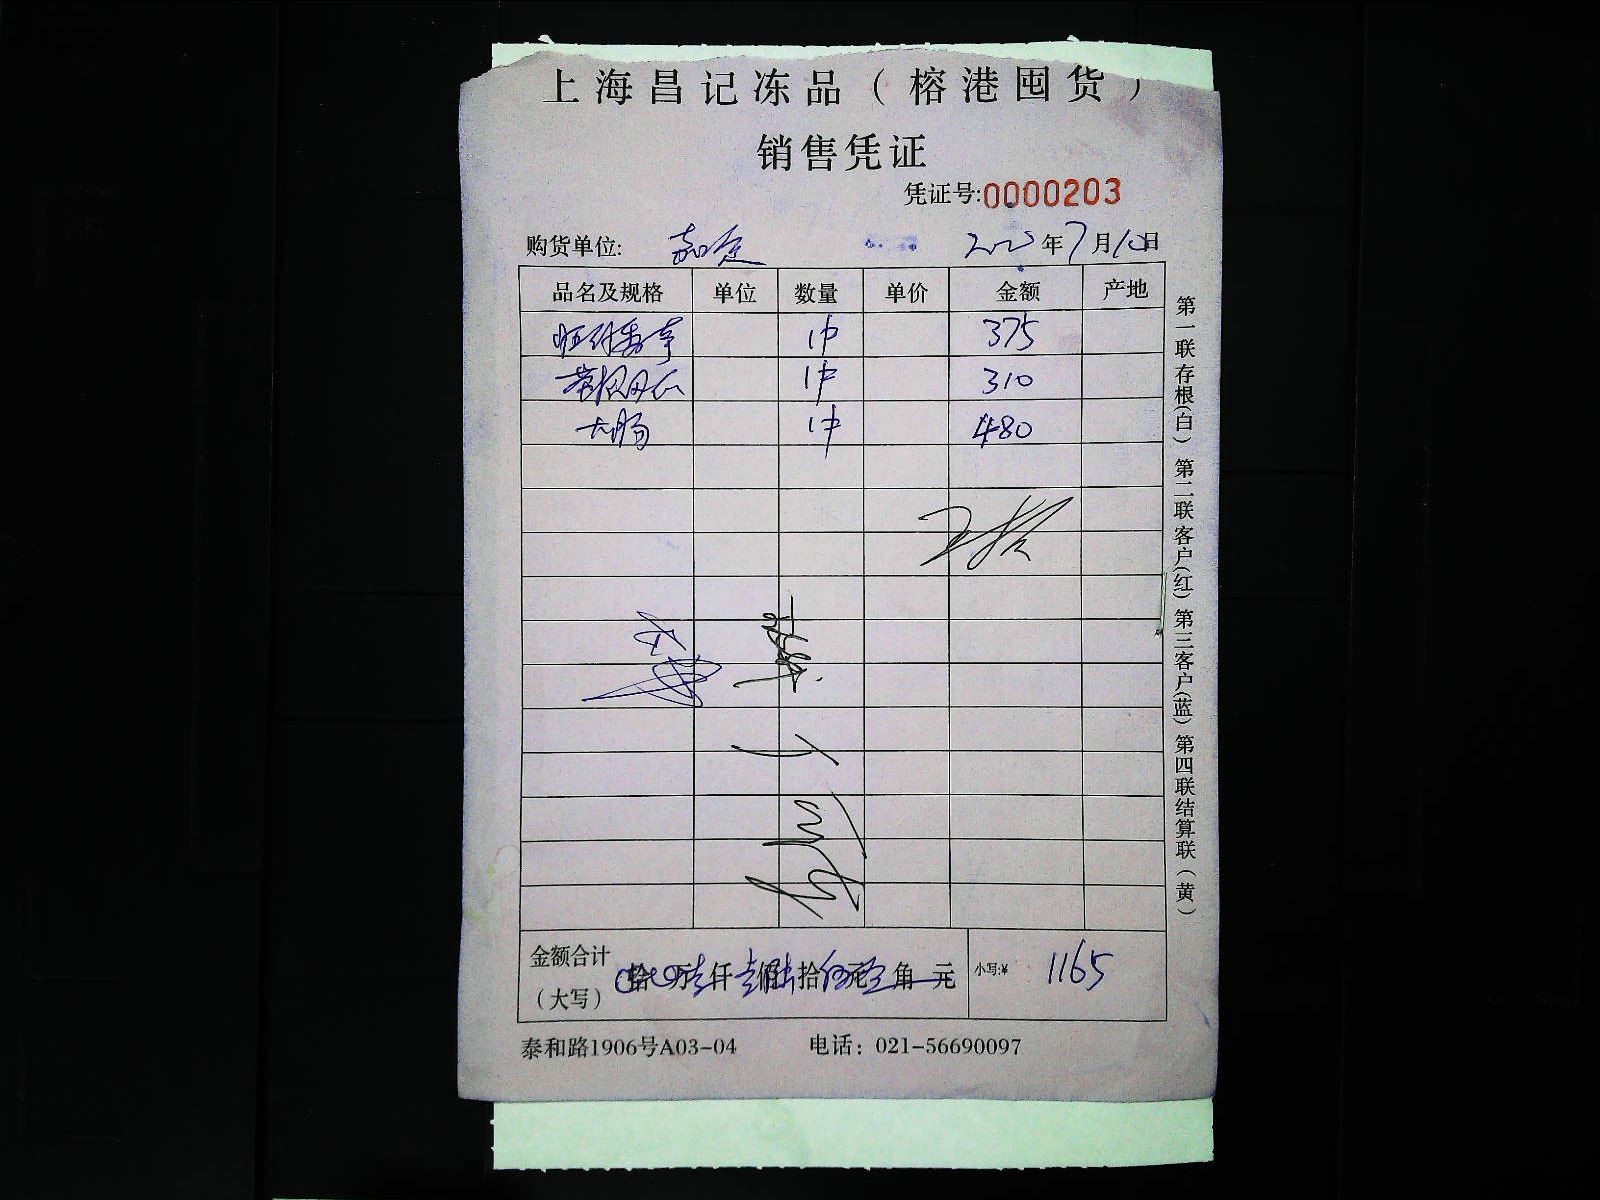 上海昌记冻品（榕港囤货）
销售凭证
凭证号:0000203
购货单位: 嘉定 2020年7月10日
品名及规格 单位 数量 单价 金额 产地
1件 375
1件 310
大肠 1件 480
金额合计
（大写） 拾 万壹仟壹佰陆拾伍元 角 元 小写:¥ 1165
泰和路1906号A03-04 电话：021-56690097
第一联存根(白) 第二联客户(红) 第三客户(蓝) 第四联结算联(黄)